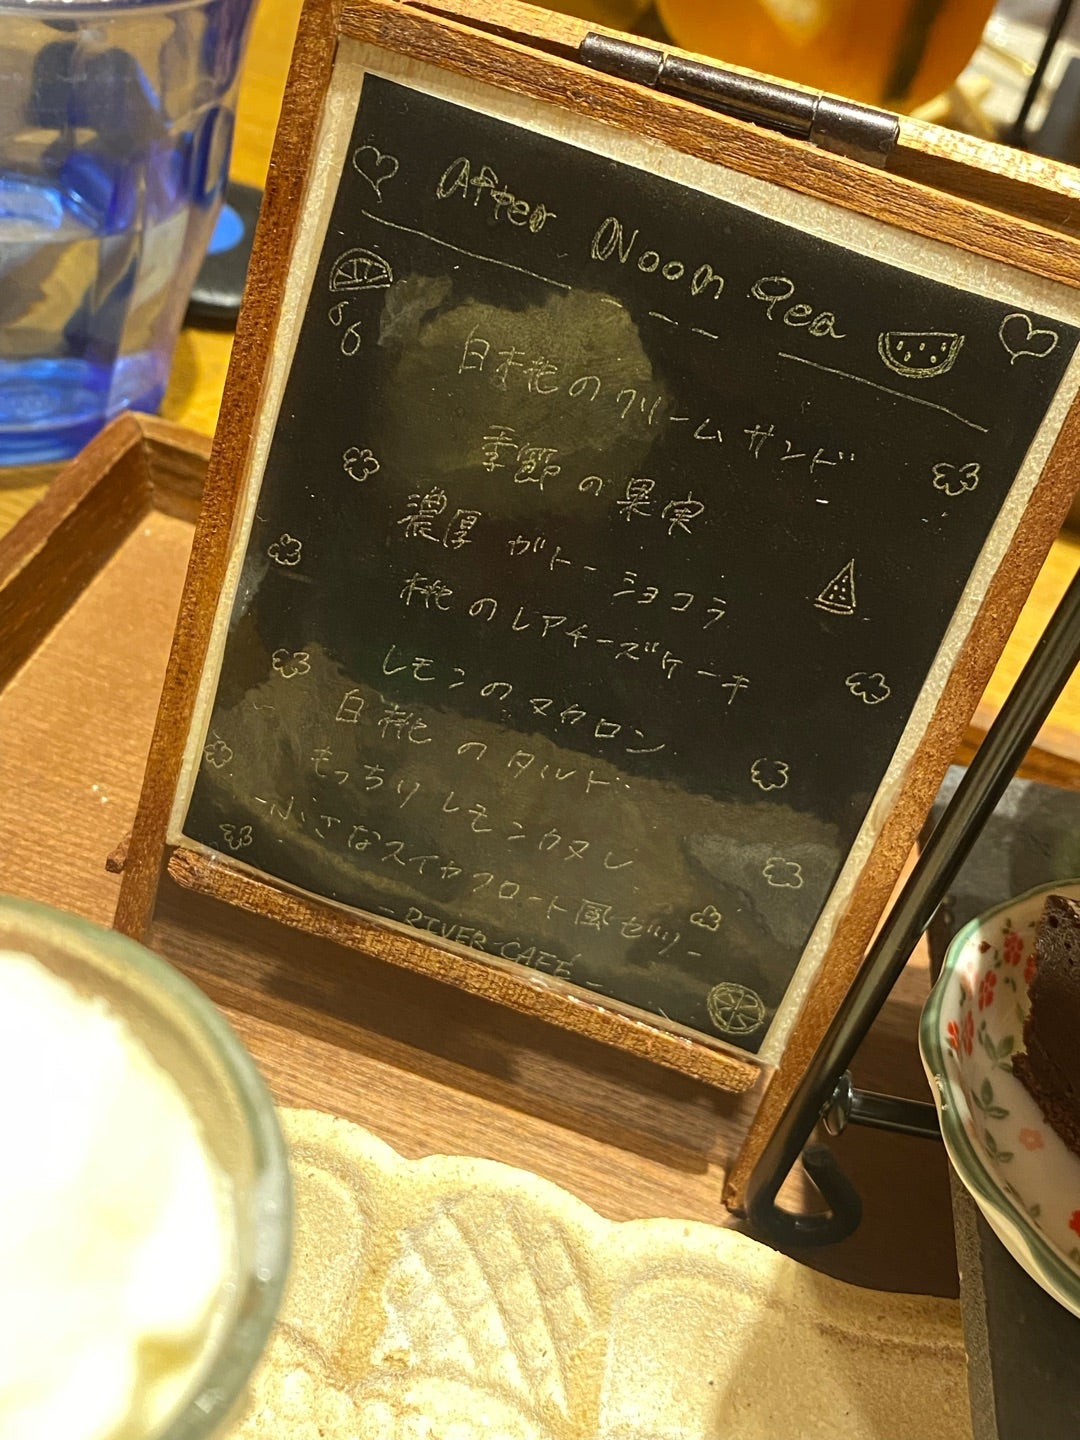 After Noon Tea
白桃のクリームサンド
季節の果実
濃厚 ガトーショコラ
桃のレアチーズケーキ
レモンのマカロン
白桃のタルト
もっちりレモンカヌレ
-小さなスイカフロート風ゼリー-
-RIVER CAFE-